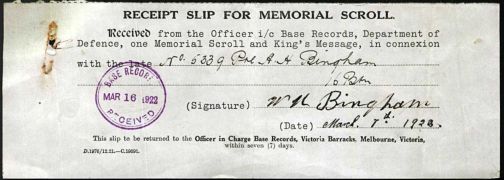 RECEIPT SLIP FOR MEMORIAL SCROLL.
Received from the Officer i/c Base Records, Department of
Defence, one Memorial Scroll and King's Message, in connexion
with the late No. 5339 Pte A. H. Bingham
Bn
BASE RECORDS
MAR 16 1922
RECEIVED
(Signature) W H Bingham
(Date) March 1922.
This slip to be returned to the Officer in Charge Base Records, Victoria Barracks, Melbourne, Victoria,
within seven (7) days.